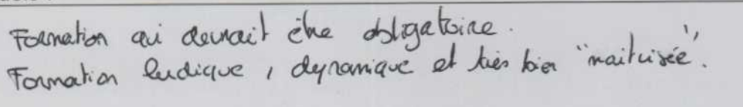 Formation qui devrait être obligatoire.
Formation ludique, dynamique et très bien "maitrisée".